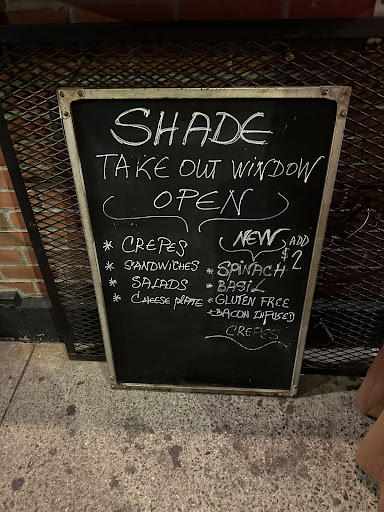 SHADE
TAKE OUT WINDOW
OPEN
* CREPES
* SANDWICHES
* SALADS
* CHEESE PLATE
NEW ADD $2
* SPINACH
* BASIL
* GLUTEN FREE
* BACON INFUSED
CREPES